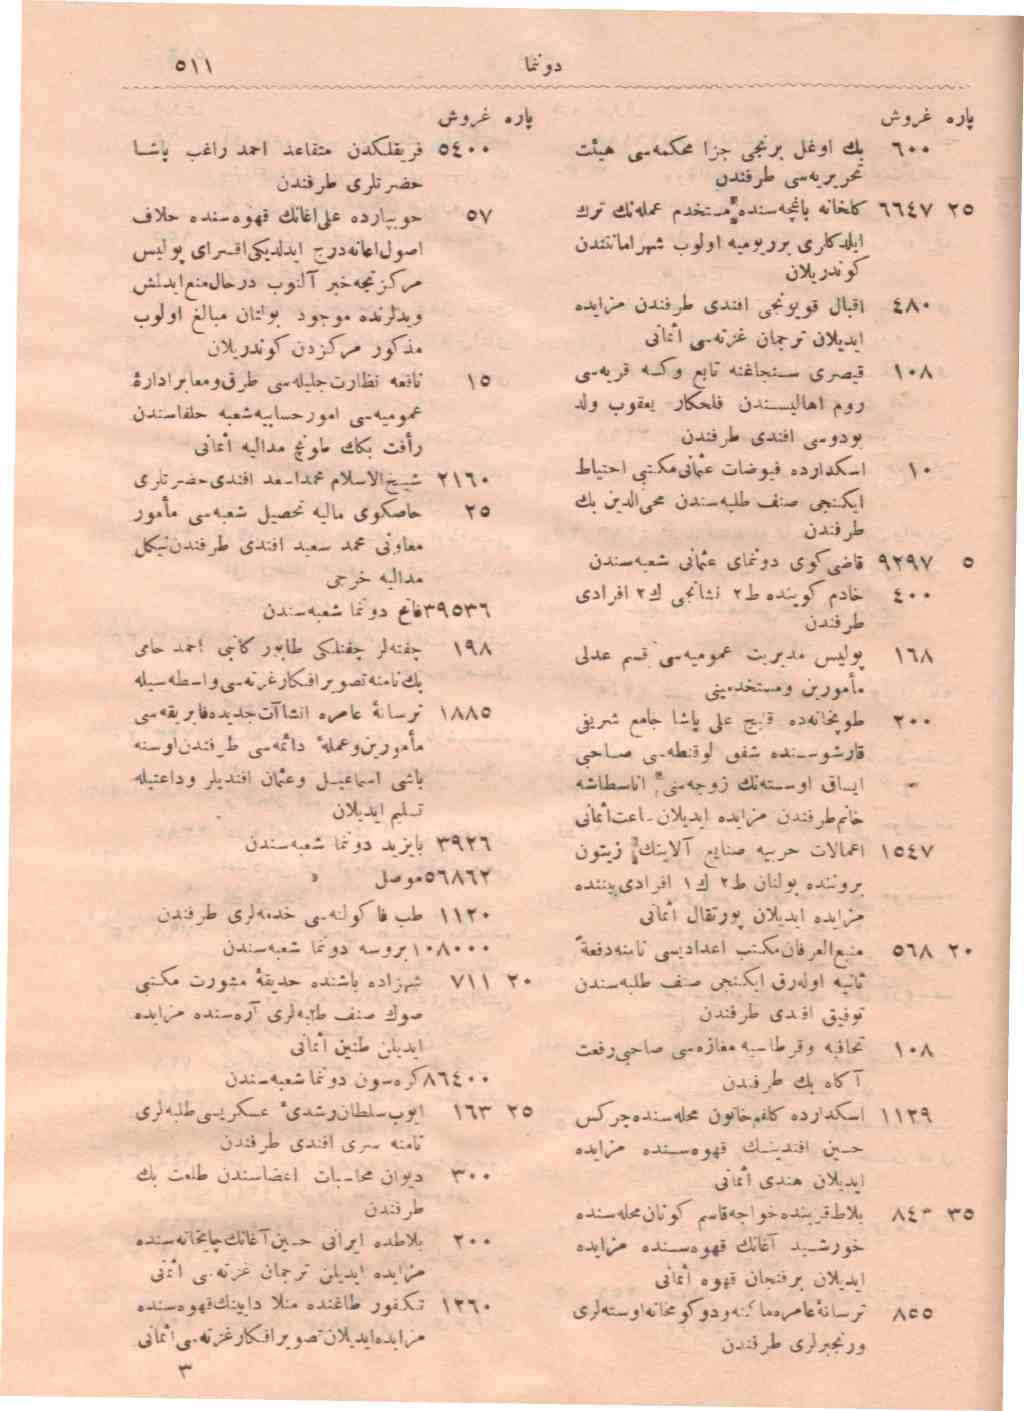 دونما ٥١١
پاره غروش
٦٠٠ بك اوغلی برنجی جزا محکمه‌سی هیئت
تحریریه‌سی طرفندن
٢٥ ٦٦٤٧ کلخانه باغچه‌سنده مستخدم عمله‌نك ترك
ایلدکلری بر یومیه اولوب شهر امانتندن
کوندریلان
٤٨٠ اقبال قویونجی افندی طرفندن مزایده
ایدیلان ترجمان غزته‌سی اثمانی
١٠٨ قیصری سنجاغنه تابع وکسه قریه‌سی
روم اهالیسندن فلحکار یعقوب ولد
بودوسی افندی طرفندن
١٠ اسکدارده فیوضات عثمانی مکتبی احتیاط
ایکنجی صنف طلبه‌سندن محی‌الدین بك
طرفندن
٥ ٩٢٩٧ قاضی کوی دونمای عثمانی شعبه‌سندن
٤٠٠ خادم کوینده ط٢ نشانجی ك٢ افرادی
طرفندن
١٦٨ پولیس مدیریت عمومیه‌سی قسم عدلی
مأمورین ومستخدمینی
٢٠٠ طوپخانه‌ده قلیج علی پاشا جامع شریفی
قارشوسنده شفق لوقنطه‌سی صاحبی
ایساق اوسته‌نك زوجه‌سی اناسطاشه
خانم طرفندن مزایده ایدیلان ساعت اثمانی
١٥٤٧ اعمالات حربیه صنایع آلاینك زیتون
بروننده بولنان ط٢ ك١ افرادی بیننده
مزایده ایدیلان پورتقال اثمانی
٢٠ ٥٦٨ منبع‌العرفان مکتب اعدادیسی نامنه دفعهٔ
ثانیه اوله‌رق ایکنجی صنف طلبه‌سندن
توفیق افندی طرفندن
١٠٨ تحافیه وقرطاسیه مغازه‌سی صاحبی رفعت
آکاه بك طرفندن
١١٢٩ اسکدارده کلفم‌خاتون محله‌سنده چرکس
حسین افندینك قهوه‌سنده مزایده
ایدیلان هندی اثمانی
٣٥ ٨٤٣ بلاط قربنده خواجه قاسم کونان محله‌سنده
خورشید آغانك قهوه‌سنده مزایده
ایدیلان بر فنجان قهوه اثمانی
٨٥٥ ترسانهٔ عامره ماکنه ودوکومخانه اوسته‌لری
ورنجبرلری طرفندن
پاره غروش
٥٤٠٠ فریقلکدن متقاعد احمد راغب پاشا
حضرتلری طرفندن
٥٧ جوبیارده علی اغانك قهوه‌سنده خلاف
اصول اعانه درج ایدلدیکی اقسرای پولیس
مرکزنجه خبر آلنوب درحال منع ایدلش
ویدلرنده موجود بولنان مبالغ اولوب
مذکور مرکزدن کوندریلان
١٥ نافعه نظارت جلیله‌سی طرق ومعابر ادارهٔ
عمومیه‌سی امور حسابیه شعبه خلفاسندن
رأفت بکك طونج مدالیه اثمانی
٢١٦٠ شیخ‌الاسلام محمد اسعد افندی حضرتلری
٢٥ خاصکوی مالیه تحصیل شعبه‌سی مأمور
معاونی محمد سعید افندی طرفندن نیکل
مدالیه خرجی
٣٩٥٣٦ فاتح دونما شعبه‌سندن
١٩٨ چفته‌لر چفتلکی طابور کاتبی احمد حامی
بك نامنه تصویر افکار غزته‌سی واسطه‌سیله
١٨٨٥ ترسانهٔ عامره انشاآت جدیده فابریقه‌سی
مأمورین وعملهٔ دائمه‌سی طرفندن اوسته
باشی اسماعیل وعثمان افندیلر وداعتیله
تسلیم ایدیلان
٣٩٢٦ بایزید دونما شعبه‌سندن
٥٦٨٦٢ موصل »
١١٢٠ طب فاکولته‌سی خدمه‌لری طرفندن
١٠٨٠٠٠ بروسه دونما شعبه‌سندن
٢٠ ٧١١ شهزاده باشنده حدیقهٔ مشورت مکتبی
صوك صنف طلبه‌لری آره‌سنده مزایده
ایدیلن طنین اثمانی
٨٦٤٠٠ کره‌سون دونما شعبه‌سندن
٢٥ ١٦٣ ایوب سلطان رشدیٔ عسکریسی طلبه‌لری
نامنه سری افندی طرفندن
٣٠٠ دیوان محاسبات اعضاسندن طلعت بك
طرفندن
٢٠٠ بلاطده ایرانی حسین آغانك چایخانه‌سنده
مزایده ایدیلن ترجمان غزته‌سی اثمنی
١٢٦٠ تکفور طاغنده منلا دایینك قهوه‌سنده
مزایده ایدیلان تصویر افکار غزته‌سی اثمانی
٣